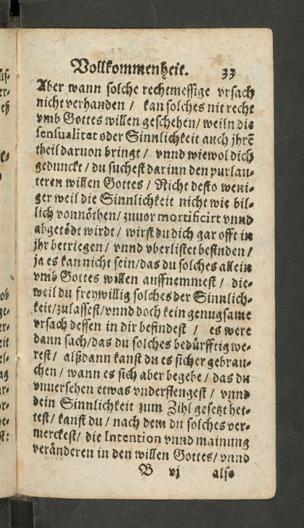 Vollkommenheit. 33
Aber wann solche rechtmessige vrsach
nicht verhanden / kan solches nit recht
vmb Gottes willen geschehen / weiln die
sensualitet oder Sinnlichkeit auch jhrẽ
theil daruon bringt / vnnd wiewol dich
gedunckt / du suchest darinn den purlau-
teren willen Gottes / Nicht desto weni-
ger weil die Sinnlichkeit nicht wie bil-
lich vonnöthen / zuuor mortificirt vnnd
abgetödt wirdt / wirst du dich gar offt in
jhr betriegen / vnnd vberlistet befinden /
ja es kan nicht sein / das du solches allein
vmb Gottes willen auffnemmest / die-
weil du freywillig solches der Sinnlich-
keit / zulassest / vnnd doch kein genugsame
vrsach dessen in dir befindest / es were
dann sach / das du solches bedürfftig we-
rest / alßdann kanst du es sicher gebrau-
chen / wann es sich aber begebe / das du
vnuersehen etwas vnderfiengest / vnnd
dein Sinnlichkeit zum Zihl gesetzt het-
test / kanst du / nach dem du solches ver-
merckest / die Intention vnnd mainung
veränderen in den willen Gottes / vnnd
B vj also